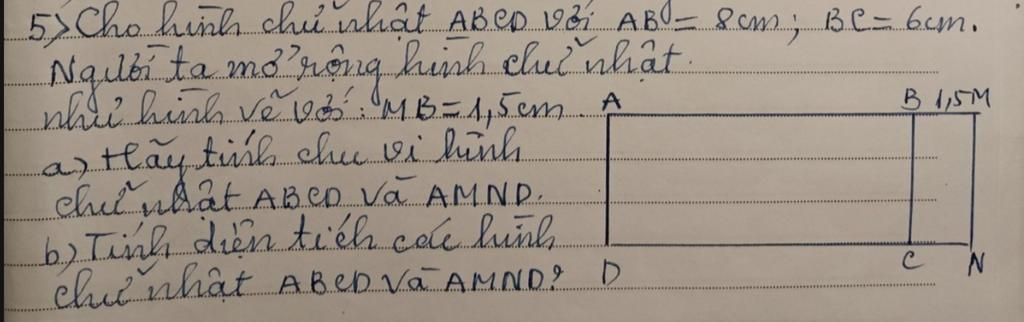 5> Cho hình chữ nhật ABCD với AB = 8cm; BC = 6cm.
Người ta mở rộng hình chữ nhật
như hình vẽ với: MB = 1,5cm.
a) Hãy tính chu vi hình
chữ nhật ABCD và AMND.
b) Tính diện tích các hình
chữ nhật ABCD và AMND?
A B 1,5 M
D C N